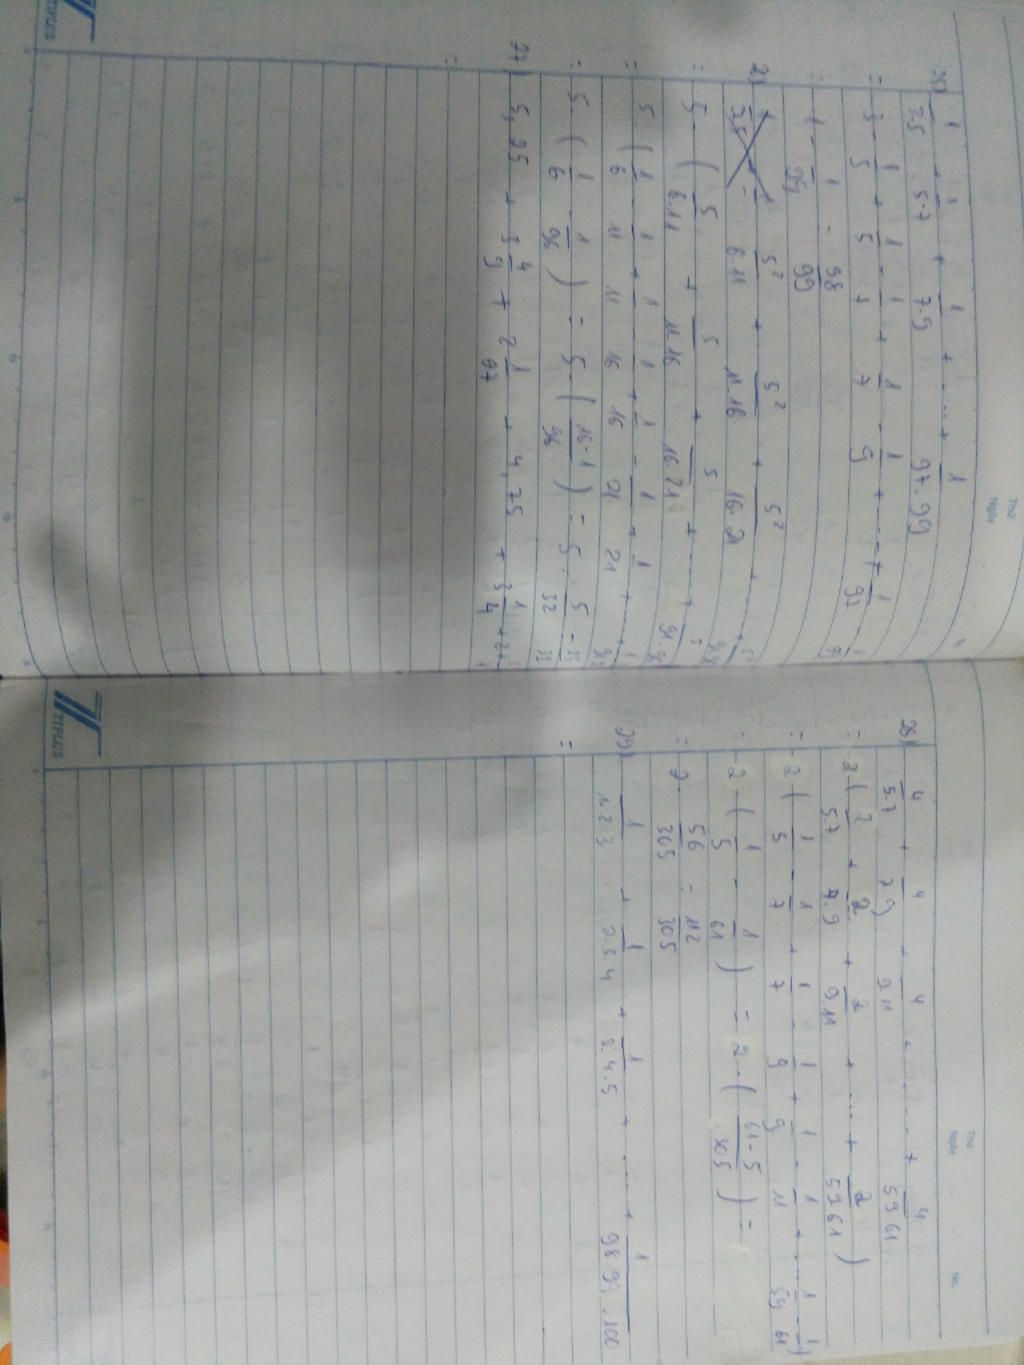 Thứ
Ngày
25) 1/3.5 + 1/5.7 + 1/7.9 + ... + 1/97.99
= 1/3 - 1/5 + 1/5 - 1/7 + 1/7 - 1/9 + ... + 1/97
= 1 - 1/99 = 98/99
2) 5²/6.11 + 5²/11.16 + 5²/16.21 +
= 5 ( 5/6.11 + 5/11.16 + 5/16.21 + +
= 5 ( 1/6 - 1/11 + 1/11 - 1/16 + 1/16 - 1/21 + 1/21 +
= 5 ( 1/6 - 1/96 ) = 5 . ( 16-1/96 ) = 5 . 5/32 = 25/32
27) 5,25 + 3 4/9 + 2 1/17 - 4,75 + 3 1/4 + 2
=
TIPLUS
Thứ
Ngày
No.
28) 4/5.7 + 4/7.9 + 4/9.11 + ... + 4/59.61
= 2 ( 2/5.7 + 2/7.9 + 2/9.11 + ... + 2/59.61 )
= 2 ( 1/5 - 1/7 + 1/7 - 1/9 + 1/9 - 1/11 + ... 1/59 1/61 )
= 2 ( 1/5 - 1/61 ) = 2 . ( 61-5/305 ) =
= 2 . 56/305 = 112/305
29) 1/1.2.3 + 1/2.3.4 + 1/3.4.5 + ... + 1/98.99.100
=
TIPLUS